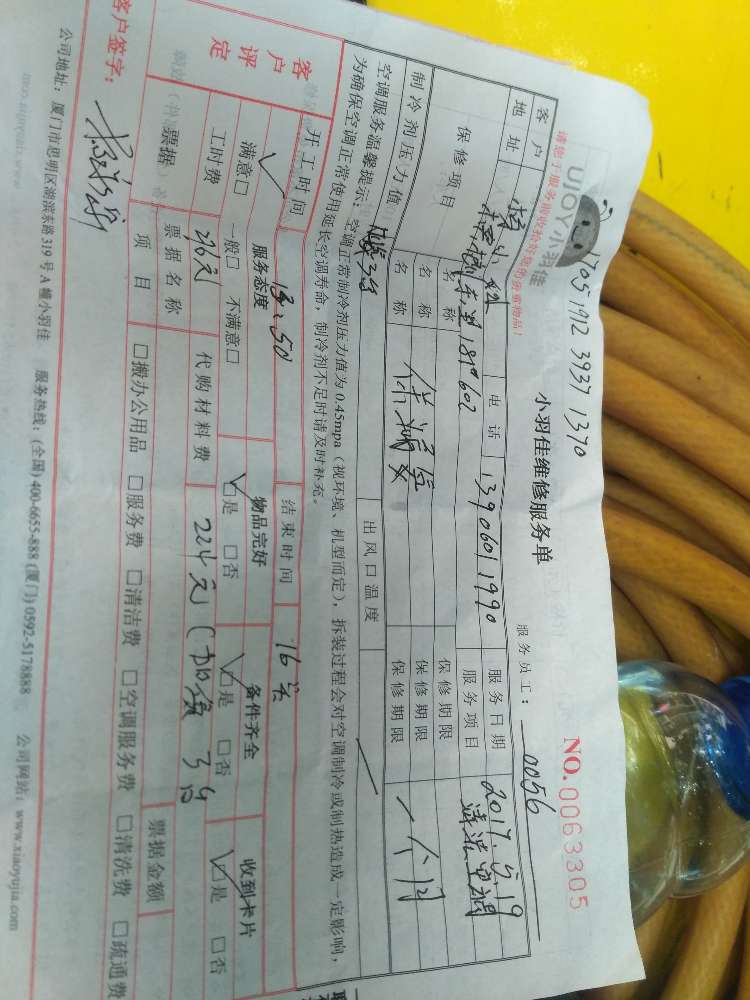 170519123937 1370
请您于服务前收拾好您的贵重物品!
UJOY小羽佳
小羽佳维修服务单
NO.0063305
服务员工: 0056
客户 杨小姐 电话 13906011990 服务日期 2017.5.19
地址 181#602 服务项目 清洗空调
保修项目 名称 保修期限
名称 保修期限 一个门
制冷剂压力值 名称 保修期限
出风口温度
空调服务温馨提示:空调正常制冷剂压力值为0.45mpa(视环境、机型而定),拆装过程会对空调制冷或制热造成一定影响,
为确保空调正常使用延长空调寿命,制冷剂不足时请及时补充。
开工时间 13:50 结束时间 16:
客户评定
服务态度 物品完好 备件齐全 收到卡片
满意□ 一般□ 不满意□ □是 □否 □是 □否 □是 □否
工时费 296元 代购材料费 224元
票据 票据名称 票据金额
项目 □搬办公用品 □服务费 □清洁费 □空调服务费 □清洗费 □疏通费
客户签字:
公司地址:厦门市思明区湖滨东路319号A幢小羽佳 服务热线:(全国)400-6655-888(厦门)0592-5178888 公司网站:www.xiaoyujia.com